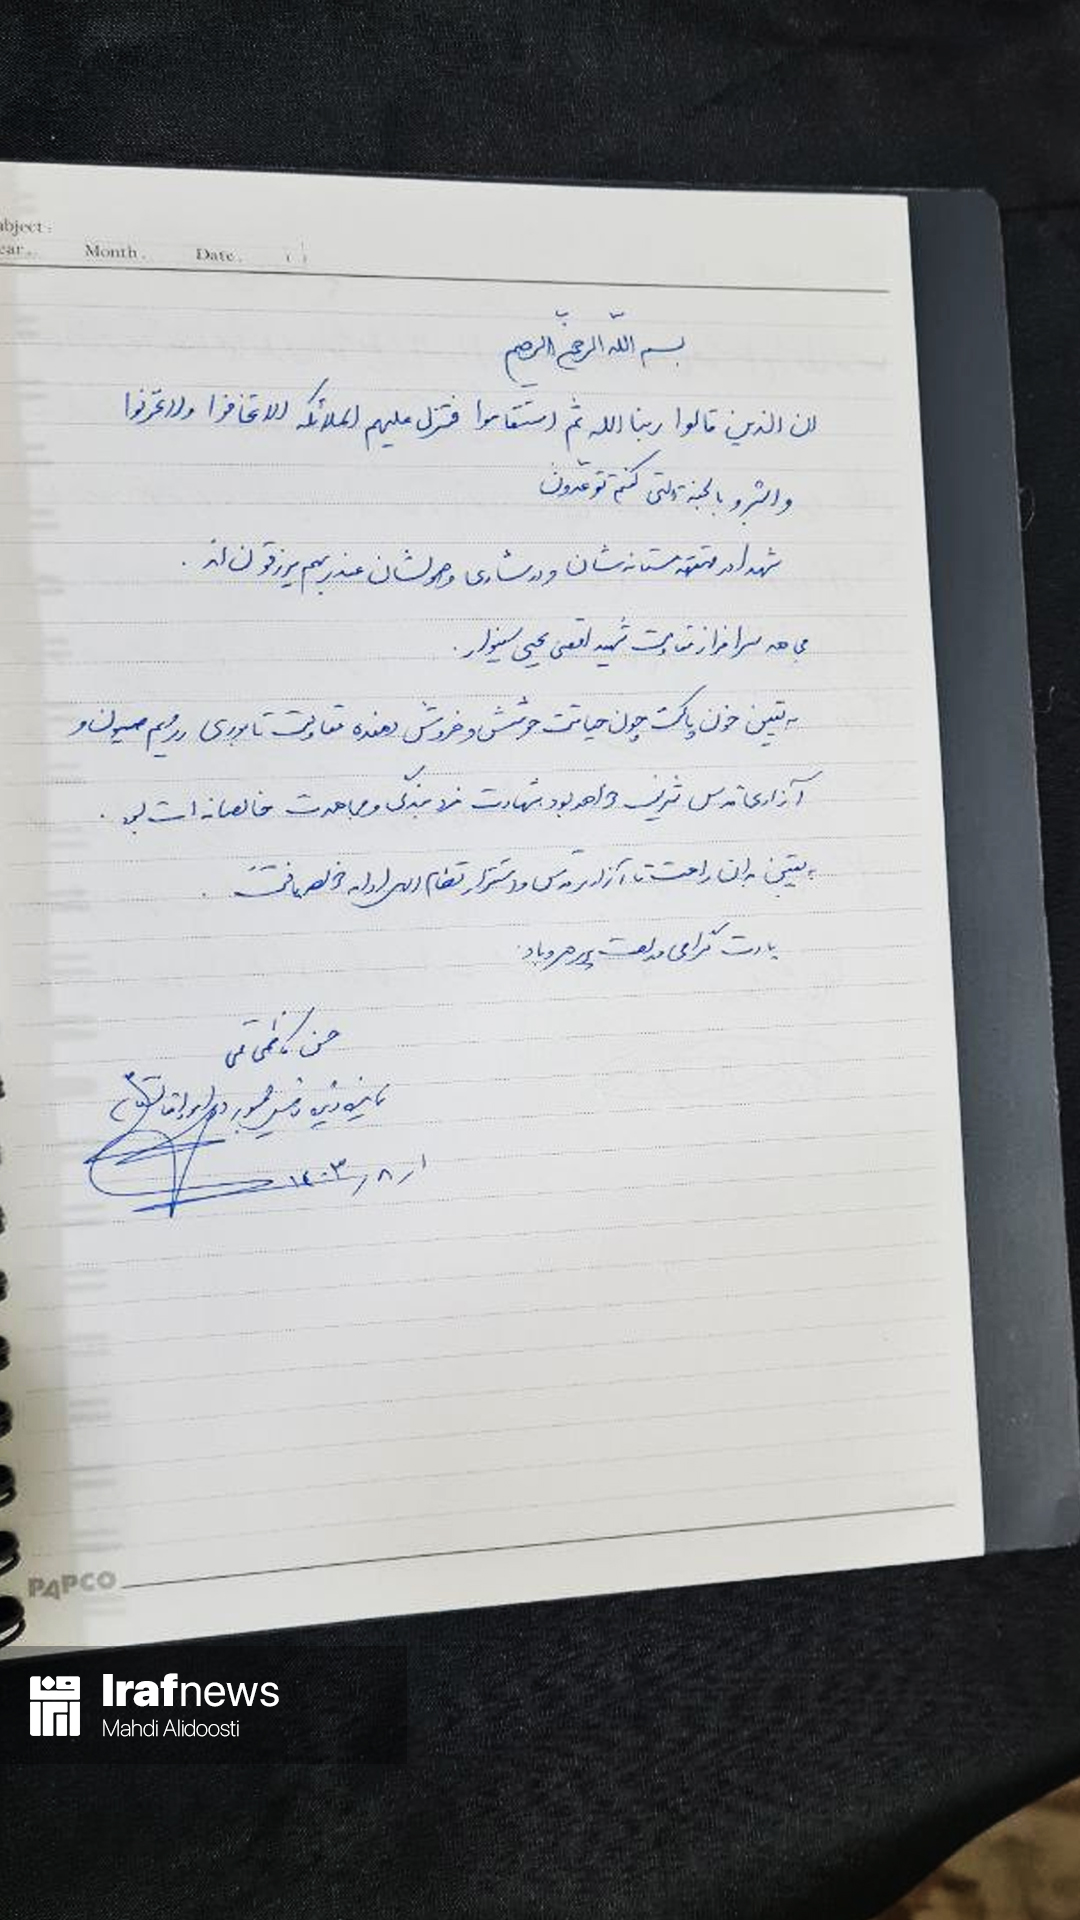 ubject:
ear. Month. Date. ( )
بسم الله الرحمن الرحیم
ان الذین قالوا ربنا الله ثم استقاموا فتنزل علیهم الملائکه الا تخافوا ولا تحزنوا
و ابشروا بالجنة التی کنتم توعدون
شهدا در قهقهه مستانه‌شان و در شادی وصولشان عند ربهم یرزقون‌اند .
مجاهد سرافراز مقاومت شهید یحیی سینوار .
به یقین خون پاکت چون حیاتت جوشش و خروش دهنده مقاومت تا نابودی رژیم صهیون و
آزادی قدس شریف خواهد بود شهادت مزد بندگی و مجاهدت خالصانه است .
به یقین بدان راهت تا آزادی قدس و استقرار نظام الهی ادامه خواهد یافت .
یادت گرامی و راهت پر رهرو باد.
حسن کاظمی قمی
نماینده ویژه رئیس جمهور در امور افغانستان
۱۴۰۳/۸/۱
PAPCO
Irafnews
Mahdi Alidoosti